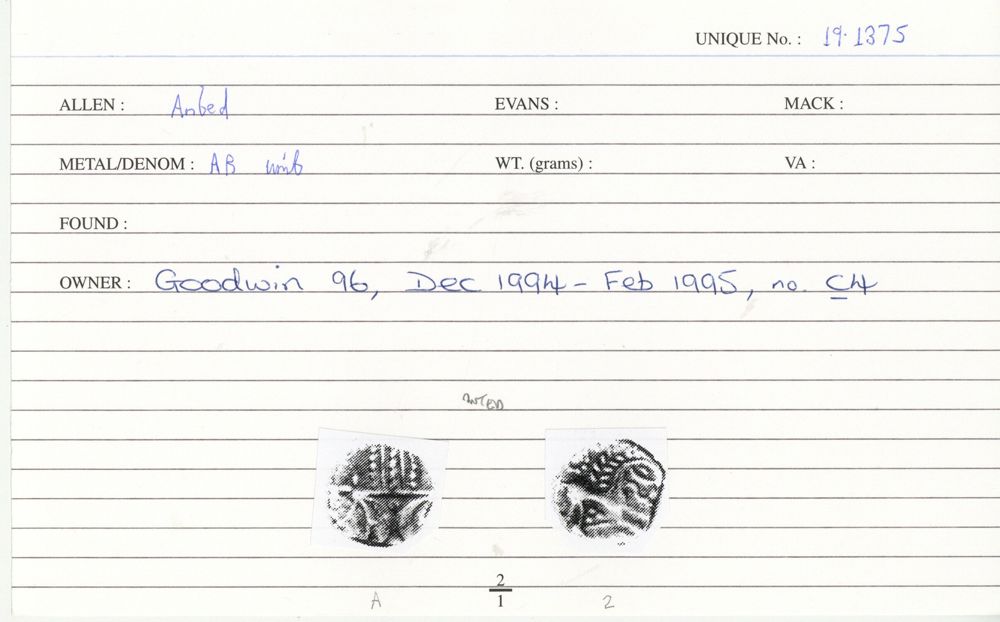 UNIQUE No. : 19·1375
ALLEN : Anted EVANS : MACK :
METAL/DENOM : AR unit WT. (grams) : VA :
FOUND :
OWNER : Goodwin 96, Dec 1994 - Feb 1995, no. C4
2
1
A 2